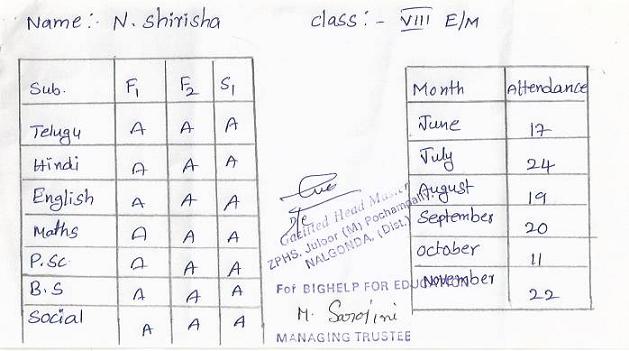 Name:- N. Shirisha class:- VIII E/M
Sub. F1 F2 S1
Telugu A A A
Hindi A A A
English A A A
Maths A A A
P.Sc A A A
B.S A A A
Social A A A
Month Attendance
June 17
July 24
August 19
September 20
october 11
November 22
Gazitted Head Master
ZPHS, Juloor (M) Pochampally.
NALGONDA, (Dist.)
For BIGHELP FOR EDUCATION
M. Sarojini
MANAGING TRUSTEE